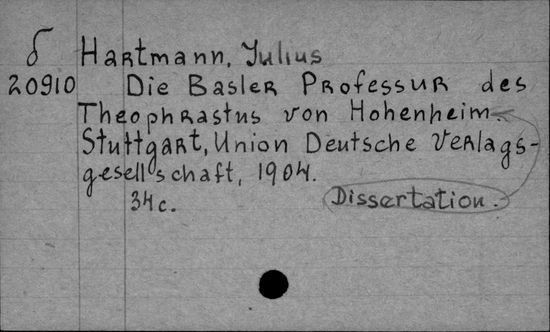 б Hartmann, Julius
20910 Die Basler Professur des
Theophrastus von Hohenheim.
Stuttgart, Union Deutsche Verlags-
gesellschaft, 1904.
34c. Dissertation.